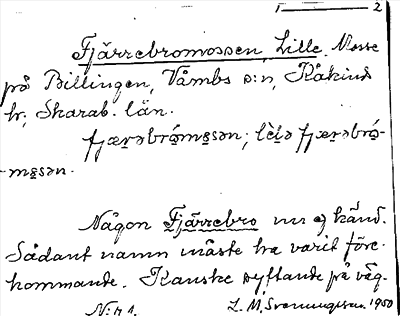 1 — 2
Fjärrebromossen, Lille. Mosse
på Billingen, Våmbs s:n, Kåkinds
hr; Skarab. län.
fjærəbrómɷsən; lèlə fjærəbró-
-mɷsən.
Någon Fjärrebro nu ej känd.
Sådant namn måste ha varit före-
kommande. Kanske syftande på väg-
L. M. Svenungsson. 1950